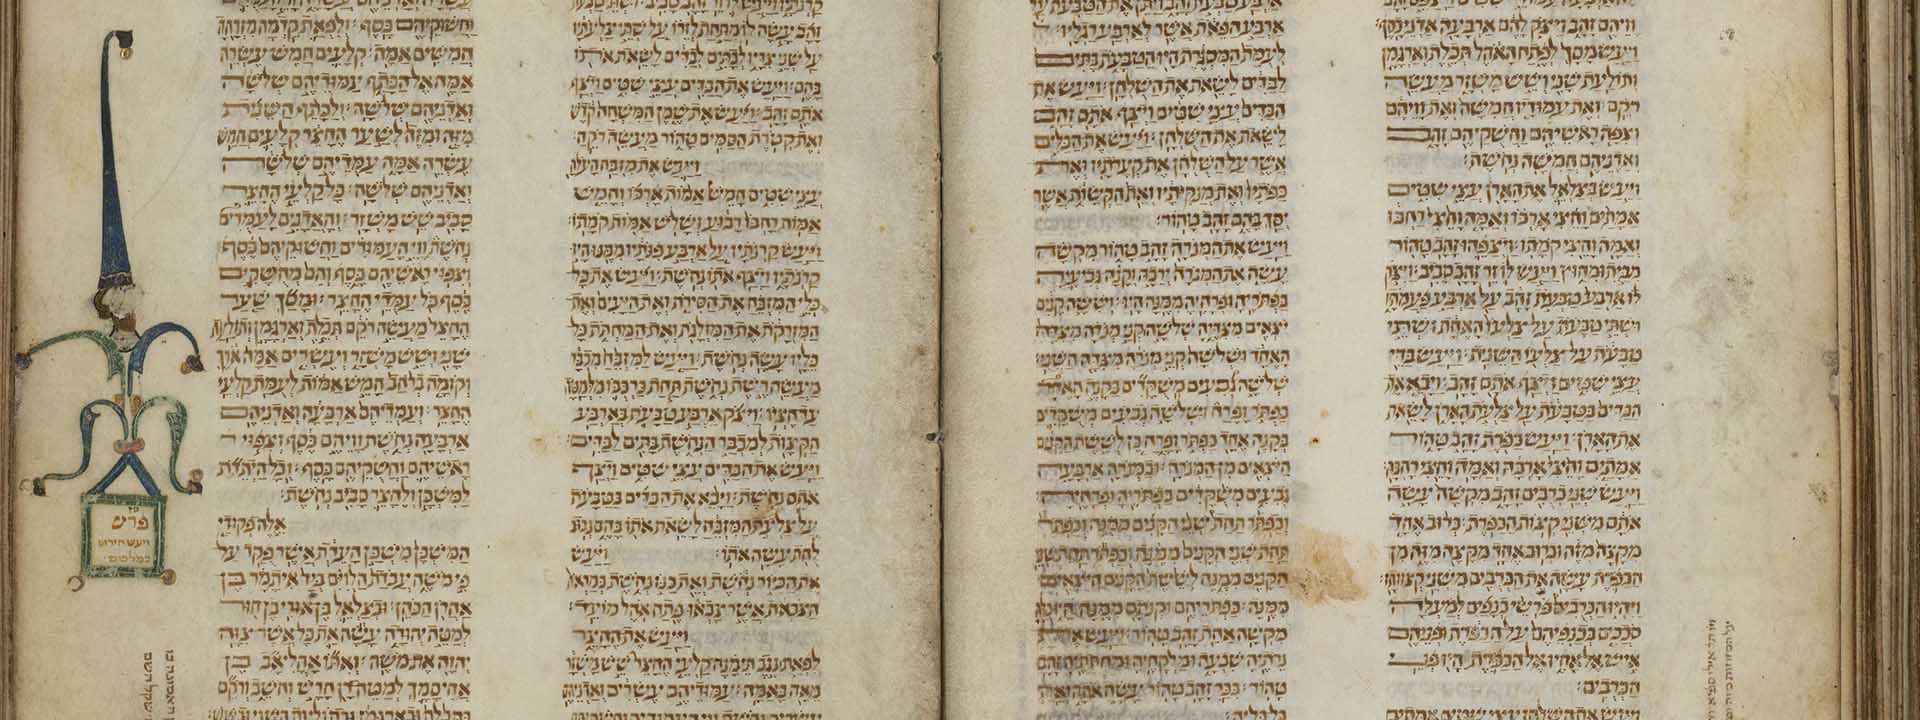 וויהם זהב ויצק להם ארבעה אדני כסף
ויעש מסך לפתח האהל תכלת וארגמן
ותולעת שני ושש משזר מעשה
רקם ואת עמודיו חמשה ואת וויהם
וצפה ראשיהם וחשקיהם זהב
ואדניהם חמשה נחשת
ויעש בצלאל את הארן עצי שטים
אמתים וחצי ארכו ואמה וחצי רחבו
ואמה וחצי קמתו ויצפהו זהב טהור
מבית ומחוץ ויעש לו זר זהב סביב ויצק
לו ארבע טבעת זהב על ארבע פעמתיו
ושתי טבעת על צלעו האחת ושתי
טבעת על צלעו השנית ויעש בדי
עצי שטים ויצף אתם זהב ויבא את
הבדים בטבעת על צלעת הארן לשאת
את הארן ויעש כפרת זהב טהור
אמתים וחצי ארכה ואמה וחצי רחבה
ויעש שני כרבים זהב מקשה עשה
אתם משני קצות הכפרת כרוב אחד
מקצה מזה וכרוב אחד מקצה מזה מן
הכפרת עשה את הכרבים משני קצותיו
ויהיו הכרבים פרשי כנפים למעלה
סככים בכנפיהם על הכפרת ופניהם
איש אל אחיו אל הכפרת היו פני
הכרבים
ויעש את השלחן עצי שטים אמתים
ארבע הפאת אשר לארבע רגליו
לעמת המסגרת היו הטבעת בתים
לבדים לשאת את השלחן ויעש את
הבדים עצי שטים ויצף אתם זהב
לשאת את השלחן ויעש את הכלים
אשר על השלחן את קערתיו ואת
כפתיו ואת מנקיתיו ואת הקשות אשר
יסך בהן זהב טהור
ויעש את המנרה זהב טהור מקשה
עשה את המנרה ירכה וקנה גביעיה
כפתריה ופרחיה ממנה היו וששה קנים
יצאים מצדיה שלשה קני מנרה מצדה
האחד ושלשה קני מנרה מצדה השני
שלשה גבעים משקדים בקנה האחד
כפתר ופרח ושלשה גבעים משקדים
בקנה אחד כפתר ופרח כן לששת הקנים
היצאים מן המנרה ובמנרה ארבעה
גבעים משקדים כפתריה ופרחיה
וכפתר תחת שני הקנים ממנה וכפתר
תחת שני הקנים ממנה וכפתר תחת שני
הקנים ממנה לששת הקנים היצאים
ממנה כפתריהם וקנתם ממנה היו כלה
מקשה אחת זהב טהור ויעש את
נרתיה שבעה ומלקחיה ומחתתיה זהב
טהור ככר זהב טהור עשה אתה ואת
כל כליה
זהב עשה לו מתחת לזרו על שתי צלעתיו
על שני צדיו לבתים לבדים לשאת אתו
בהם ויעש את הבדים עצי שטים ויצף
אתם זהב ויעש את שמן המשחה קדש
ואת קטרת הסמים טהור מעשה רקח
ויעש את מזבח העלה
עצי שטים חמש אמות ארכו וחמש
אמות רחבו רבוע ושלש אמות קמתו
ויעש קרנתיו על ארבע פנתיו ממנו היו
קרנתיו ויצף אתו נחשת ויעש את כל
כלי המזבח את הסירת ואת היעים ואת
המזרקת את המזלגת ואת המחתת כל
כליו עשה נחשת ויעש למזבח מכבר
מעשה רשת נחשת תחת כרכבו מלמטה
עד חציו ויצק ארבע טבעת בארבע
הקצות למכבר הנחשת בתים לבדים
ויעש את הבדים עצי שטים ויצף
אתם נחשת ויבא את הבדים בטבעת
על צלעת המזבח לשאת אתו בהם נבוב
לחת עשה אתו ויעש
את הכיור נחשת ואת כנו נחשת במראת
הצבאת אשר צבאו פתח אהל מועד
ויעש את החצר
לפאת נגב תימנה קלעי החצר שש משזר
מאה באמה עמודיהם עשרים ואדניהם
וחשוקיהם כסף ולפאת קדמה מזרחה
חמשים אמה קלעים חמש עשרה
אמה אל הכתף עמודיהם שלשה
ואדניהם שלשה ולכתף השנית
מזה ומזה לשער החצר קלעים חמש
עשרה אמה עמדיהם שלשה
ואדניהם שלשה כל קלעי החצר
סביב שש משזר והאדנים לעמדים
נחשת ווי העמודים וחשוקיהם כסף
וצפוי ראשיהם כסף והם מחשקים
כסף כל עמדי החצר ומסך שער
החצר מעשה רקם תכלת וארגמן ותולעת
שני ושש משזר ועשרים אמה ארך
וקומה ברחב חמש אמות לעמת קלעי
החצר ועמדיהם ארבעה ואדניהם
ארבעה נחשת וויהם כסף וצפוי
ראשיהם וחשקיהם כסף וכל היתדת
למשכן ולחצר סביב נחשת
אלה פקודי
המשכן משכן העדת אשר פקד על
פי משה עבדת הלוים ביד איתמר בן
אהרן הכהן ובצלאל בן אורי בן חור
למטה יהודה עשה את כל אשר צוה
יהוה את משה ואתו אהליאב בן
אחיסמך למטה דן חרש וחשב ורקם
פרש
ויעש חירום